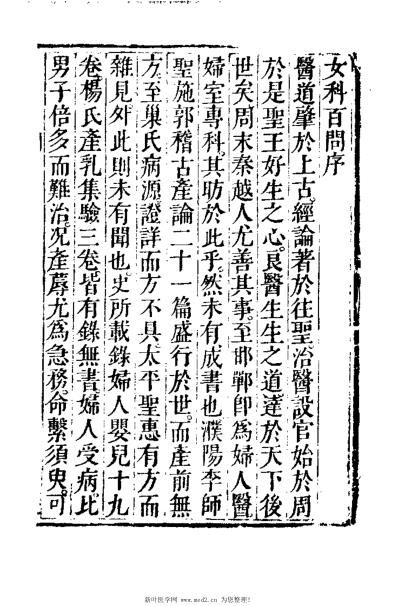 女科百問序
醫道肇於上古。經論著於往聖。治醫設官始於周
於是聖王好生之心。良醫生生之道。達於天下後
世矣周末秦越人尤善其事。至邯鄲卽爲婦人醫
婦室專科。其昉於此乎。然未有成書也濮陽李師
聖施郭稽古產論二十一篇盛行於世。而產前無
方。至巢氏病源。證詳而方不具太平聖惠有方而
雜見外此則未有聞也。史所載錄婦人嬰兒十九
卷楊氏產乳集驗三卷皆有錄無書婦人受病。比
男子倍多而難治況產蓐尤爲急務。命繫須臾。可
新叶医学网 www.med2.cn 为您整理!